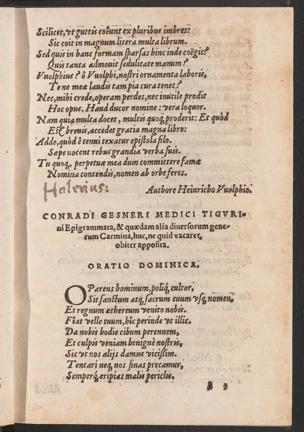 Scilicet, ut guttis coëunt ex pluribus imbres:
Sic coit in magnum litera multa librum.
Sed quis in hanc formam sparsas binc inde coëgit?
Quis tanta admovit sedulitate manum?
Vuolphius? ô Vuolphi, nostri ornamenta laboris,
Te ne meæ laudis tam pia cura tenet?
Nec, mihi crede, operam perdes, nec inutile prodit
Hoc opus. Haud ducor nomine: vera loquor.
Nam quia multa docet, multis quoq́; proderit: Et quòd
Est brevis, accedet gratia magna libro:
Adde, quòd è tenui texatur epistola filo.
Sape nocent rebus grandia verba suis.
Tu quoq́, perpetuæ mea dum committere famæ
Nomina contendis, nomen ab orbe feres.
Authore Heinricho Vuolphio.
CONRADI GESNERI MEDICI TIGVRI-
ni Epigrammata, & quædam alia diuersorum gene-
rum Carmina, huc, ne quid vacaret,
obiter apposita.
ORATIO DOMINICA.
O Parens hominum, poliq́, cultor,
Sit sanctum atq́, sacrum tuum usq́, nomen,
Et regnum æthereum venito nobis.
Fiat velle tuum, hîc perinde ut illic.
Da nobis hodie cibum perennem,
Et culpis veniam benignè nostris,
Sic ut nos alijs damus vicissim.
Tentari neq́, nos sinas precamur,
Semperq́, eripias malis periclis.